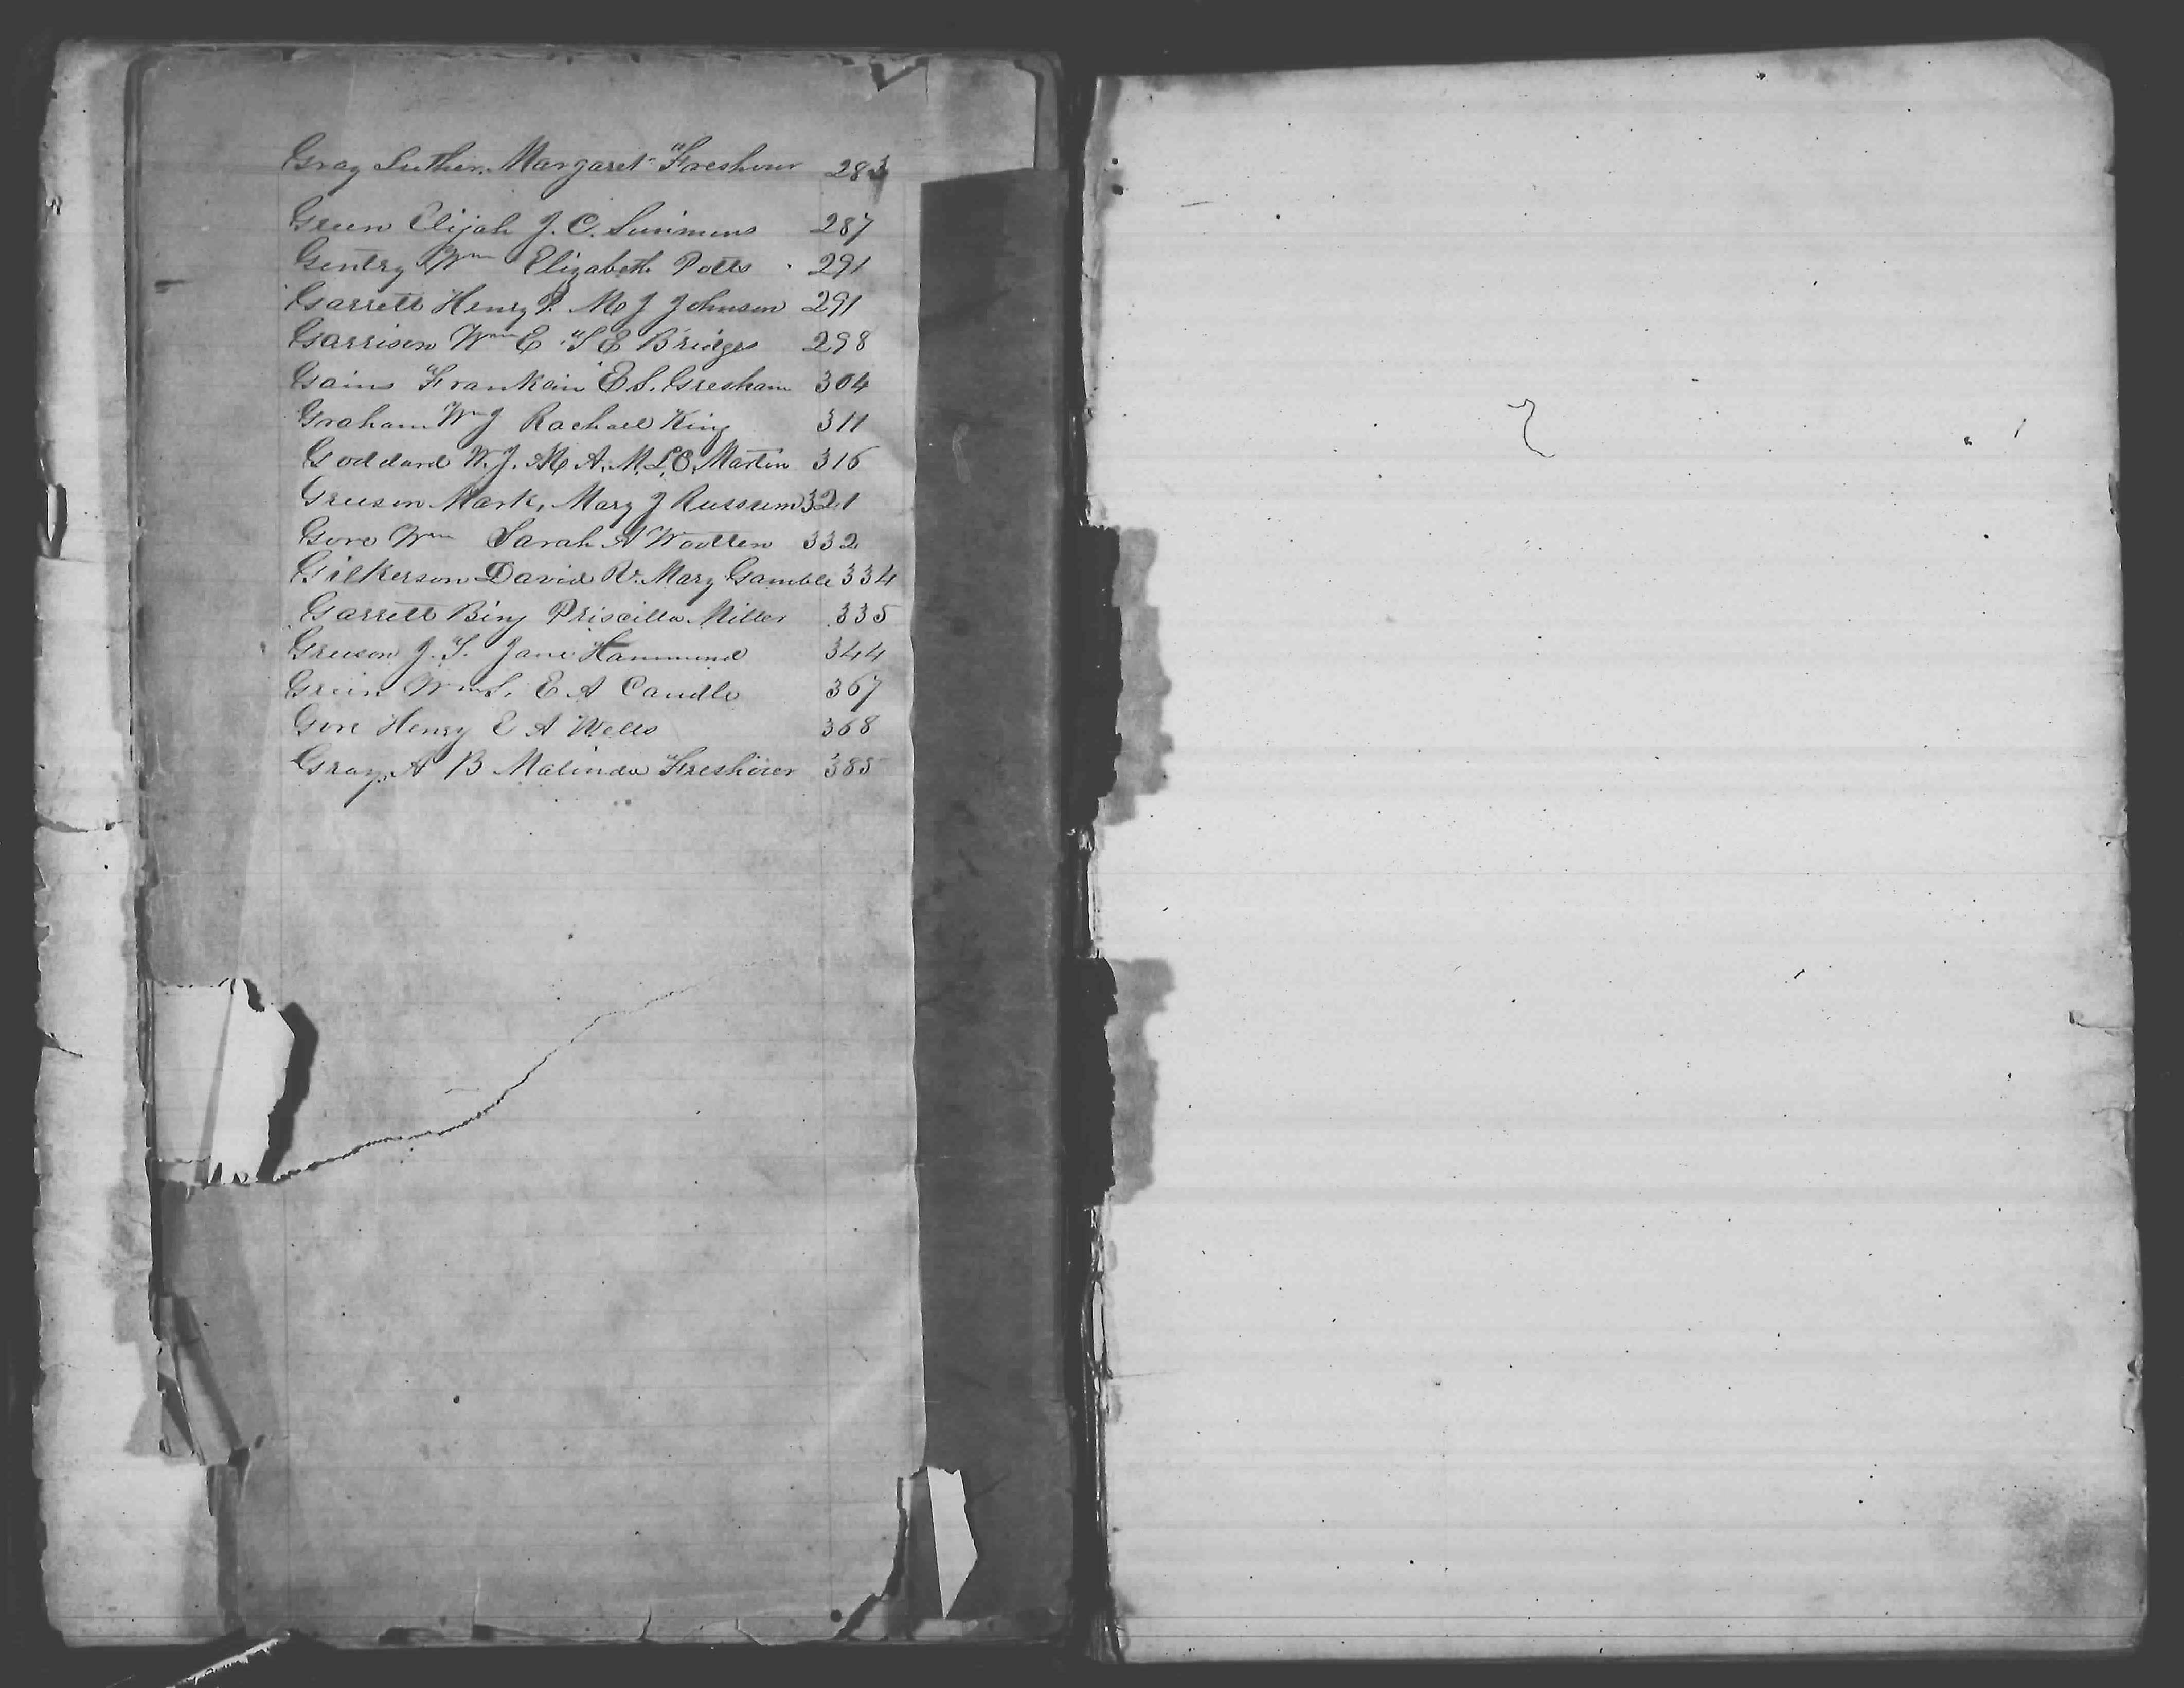 Gray Luther. Margaret Freshour 283
Green Elijah J. C. Simmons 287
Gentry Wm Elizabeth Potts 291
Garrett Henry P. M J Johnson 291
Garrison Wm E S E Bridges 298
Gains Frankain E S. Gresham 304
Graham Wm J Rachael King 311
Goddard W. J. M. A. M. L. C. Martin 316
Greeson Mark, Mary J Russum 321
Gore Wm Sarah A Wootten 332
Gilkerson David R. Mary Gamble 334
Garrett Binj Priscilla Miller 335
Greeson J. T. Jane Hammond 344
Green Wm S. E A Caudle 367
Gore Henry E A Wells 368
Gray, A B Malinda Freshour 385